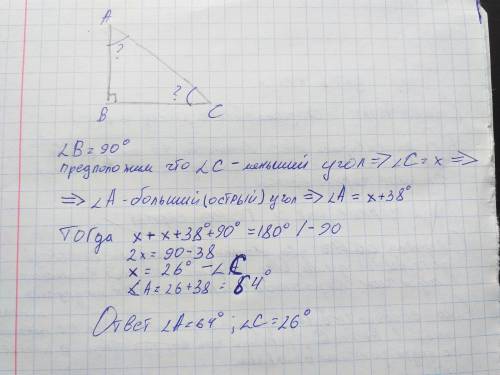 A
?
? C
B
∠B = 90°
предположим что ∠C - меньший угол => ∠C = x =>
=> ∠A - больший (острый) угол => ∠A = x+38°
Тогда x + x + 38° + 90° = 180° / -90
2x = 90 - 38
x = 26° - ∠C
∠A = 26 + 38 = 64°
Ответ ∠A = 64° ; ∠C = 26°